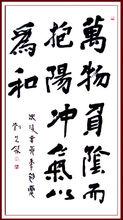 萬物負陰而
抱陽冲氣以
爲和